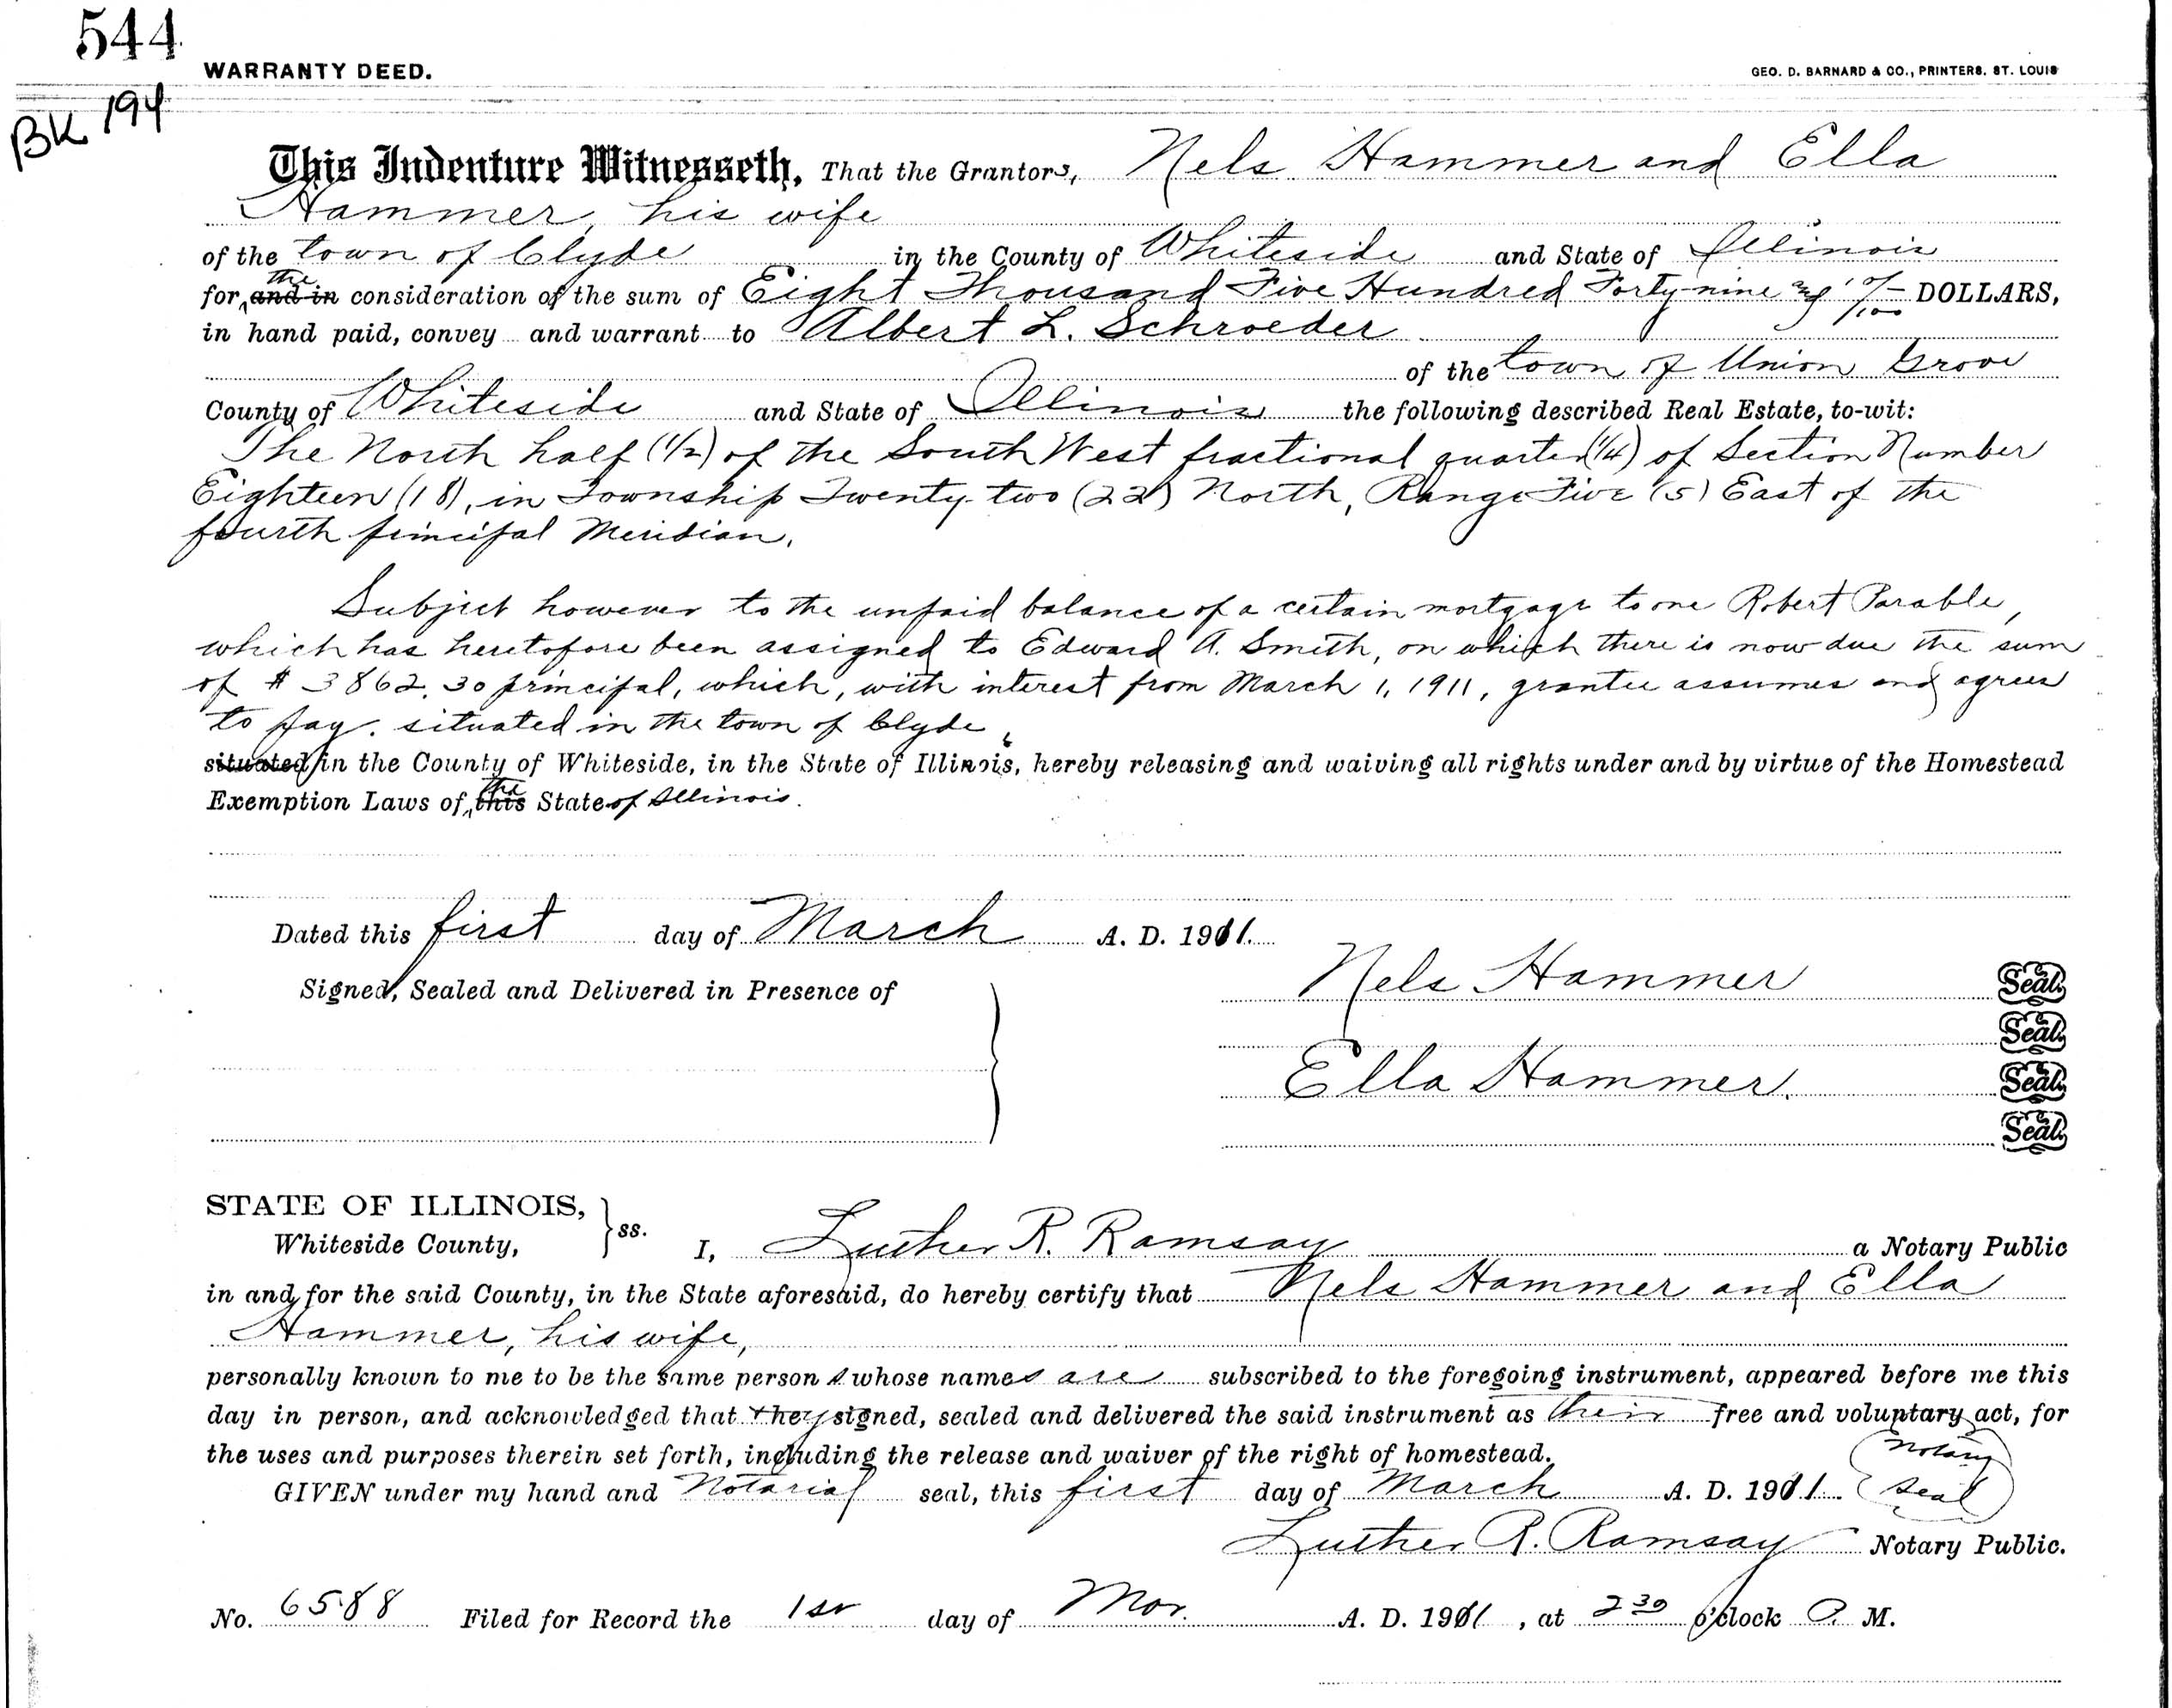 544
WARRANTY DEED.
GEO. D. BARNARD & CO., PRINTERS. ST. LOUIS
BK 194
This Indenture Witnesseth, That the Grantors, Nels Hammer and Ella
Hammer, his wife
of the town of Clyde in the County of Whiteside and State of Illinois
for the and in consideration of the sum of Eight Thousand Five Hundred Forty-nine and /100 DOLLARS,
in hand paid, convey and warrant to Albert L. Schroeder
of the town of Union Grove
County of Whiteside and State of Illinois the following described Real Estate, to-wit:
The North half (1/2) of the South West fractional quarter (1/4) of Section Number
Eighteen (18), in Township Twenty-two (22) North, Range Five (5) East of the
fourth principal Meridian.
Subject however to the unpaid balance of a certain mortgage to one Robert Parable,
which has heretofore been assigned to Edward A. Smith, on which there is now due the sum
of $3862.30 principal, which, with interest from March 1, 1911, grantee assumes and agrees
to pay. situated in the town of Clyde,
situated in the County of Whiteside, in the State of Illinois, hereby releasing and waiving all rights under and by virtue of the Homestead
Exemption Laws of the this State of Illinois.
Dated this first day of March A. D. 1911.
Signed, Sealed and Delivered in Presence of
Nels Hammer Seal.
Seal.
Ella Hammer. Seal.
Seal.
STATE OF ILLINOIS,
Whiteside County, } ss. I, Luther R. Ramsay a Notary Public
in and for the said County, in the State aforesaid, do hereby certify that Nels Hammer and Ella
Hammer, his wife,
personally known to me to be the same persons whose names are subscribed to the foregoing instrument, appeared before me this
day in person, and acknowledged that they signed, sealed and delivered the said instrument as their free and voluntary act, for
the uses and purposes therein set forth, including the release and waiver of the right of homestead.
GIVEN under my hand and Notarial seal, this first day of March A. D. 1911. (Notary Seal)
Luther R. Ramsay Notary Public.
No. 6588 Filed for Record the 1st day of Mar. A. D. 1911, at 2 30 o'clock P. M.